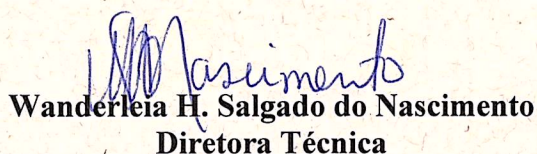 WNascimento
Wanderleia H. Salgado do Nascimento
Diretora Técnica